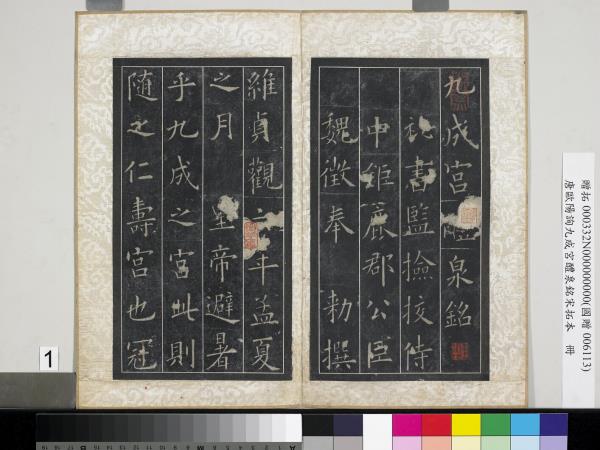 九成宮醴泉銘
祕書監撿挍侍
中鉅鹿郡公臣
魏徵奉 勑撰
維貞觀 年孟夏
之月 皇帝避暑
乎九成之宮此則
随之仁壽宮也冠
贈拓 000332N000000000(國贈 006113)
唐歐陽詢九成宮醴泉銘宋拓本 冊
1